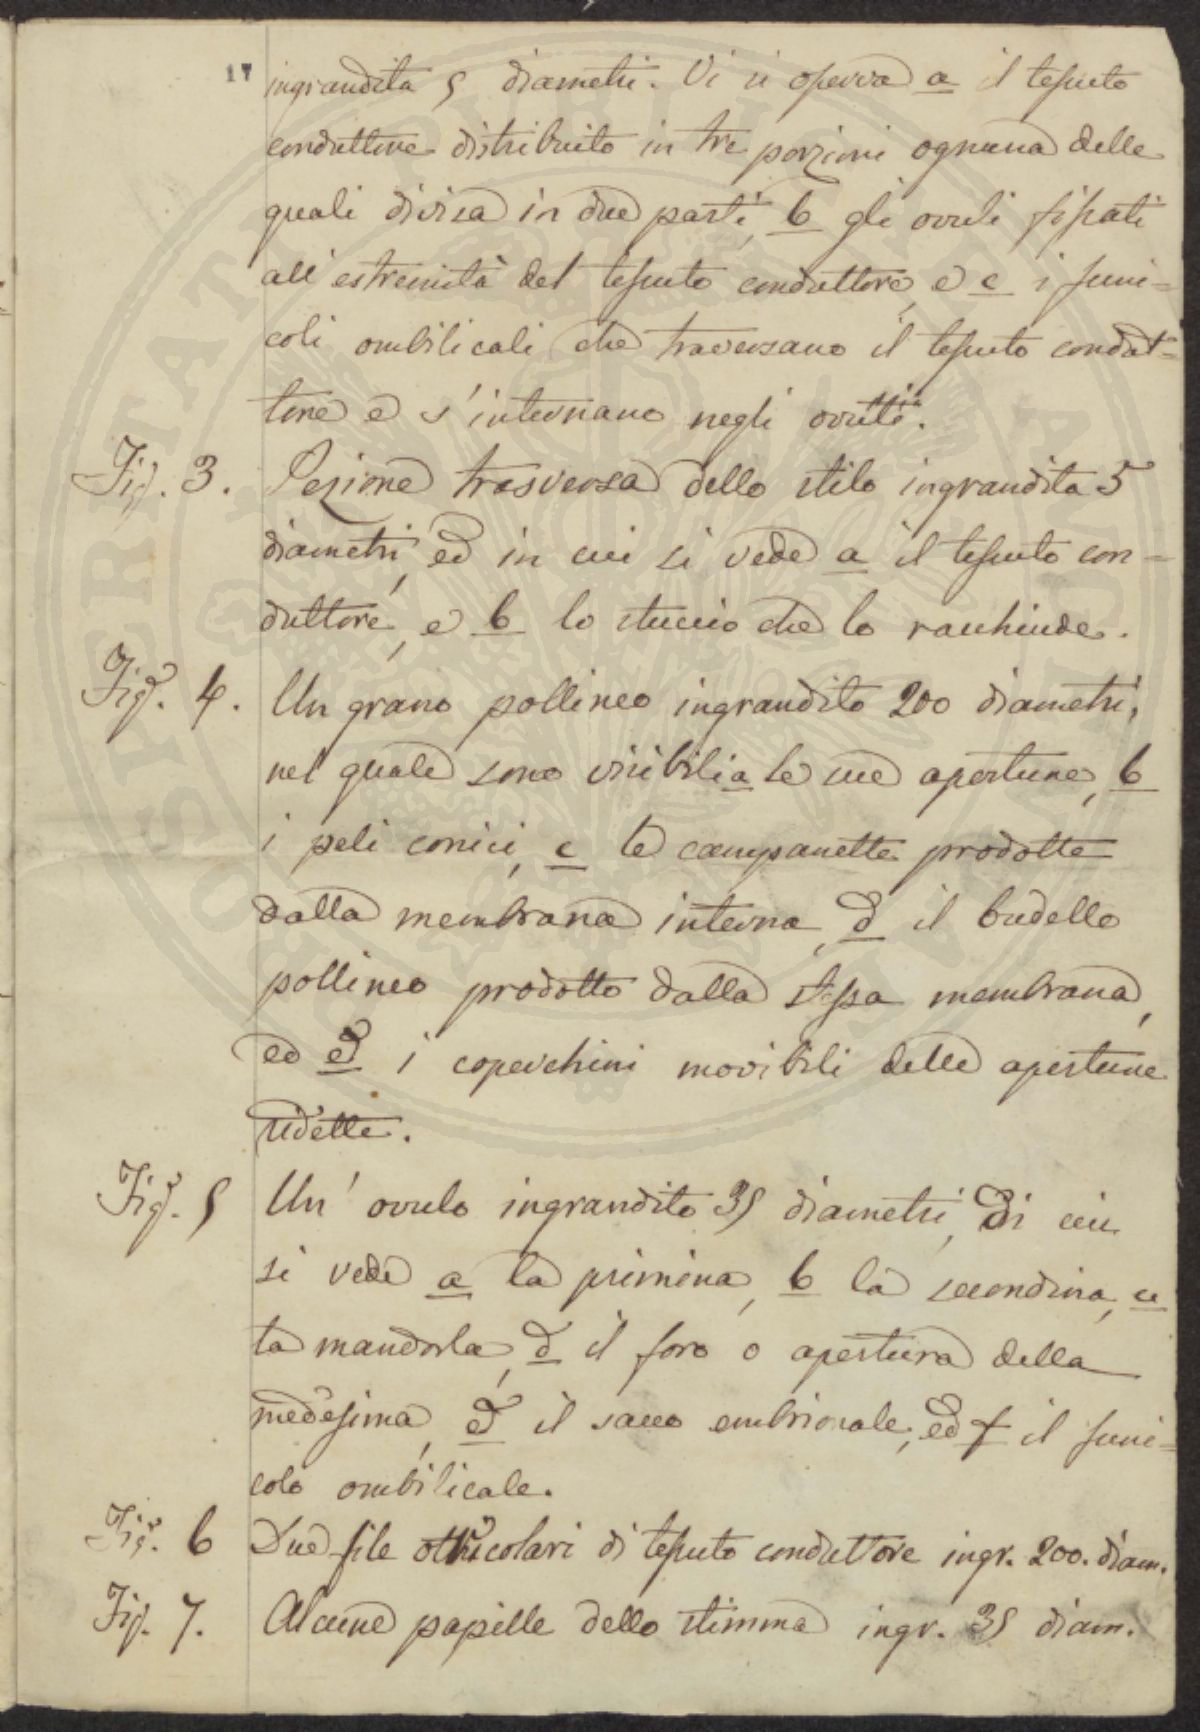 17
ingrandita 5 diametri. Vi si osserva a il tessuto
conduttore distribuito in tre porzioni ognuna delle
quali divisa in due parti, b gli ovuli fissati
all'estremità del tessuto conduttore, e c i funi=
coli ombilicali che traversano il tessuto condut=
tore e s'internano negli ovuli.
Fig. 3. Sezione trasversa dello stilo ingrandita 5
diametri, ed in cui si vede a il tessuto con=
duttore, e b lo stuccio che lo racchiude.
Fig. 4. Un grano pollineo ingrandito 200 diametri,
nel quale sono visibili a le sue aperture, b
i peli conici, c le campanette prodotte
dalla membrana interna, d il budello
pollineo prodotto dalla stessa membrana,
ed e i coperchini movibili delle aperture
sudette.
Fig. 5 Un' ovulo ingrandito 35 diametri, di cui
si vede a la primina, b la secondina, c
la mandorla, d il foro o apertura della
medesima, e il sacco embrionale, ed f il funi=
colo ombilicale.
Fig. 6 Due file otricolari di tessuto conduttore ingr. 200. diam.
Fig. 7. Alcune papille dello stimma ingr. 35 diam.